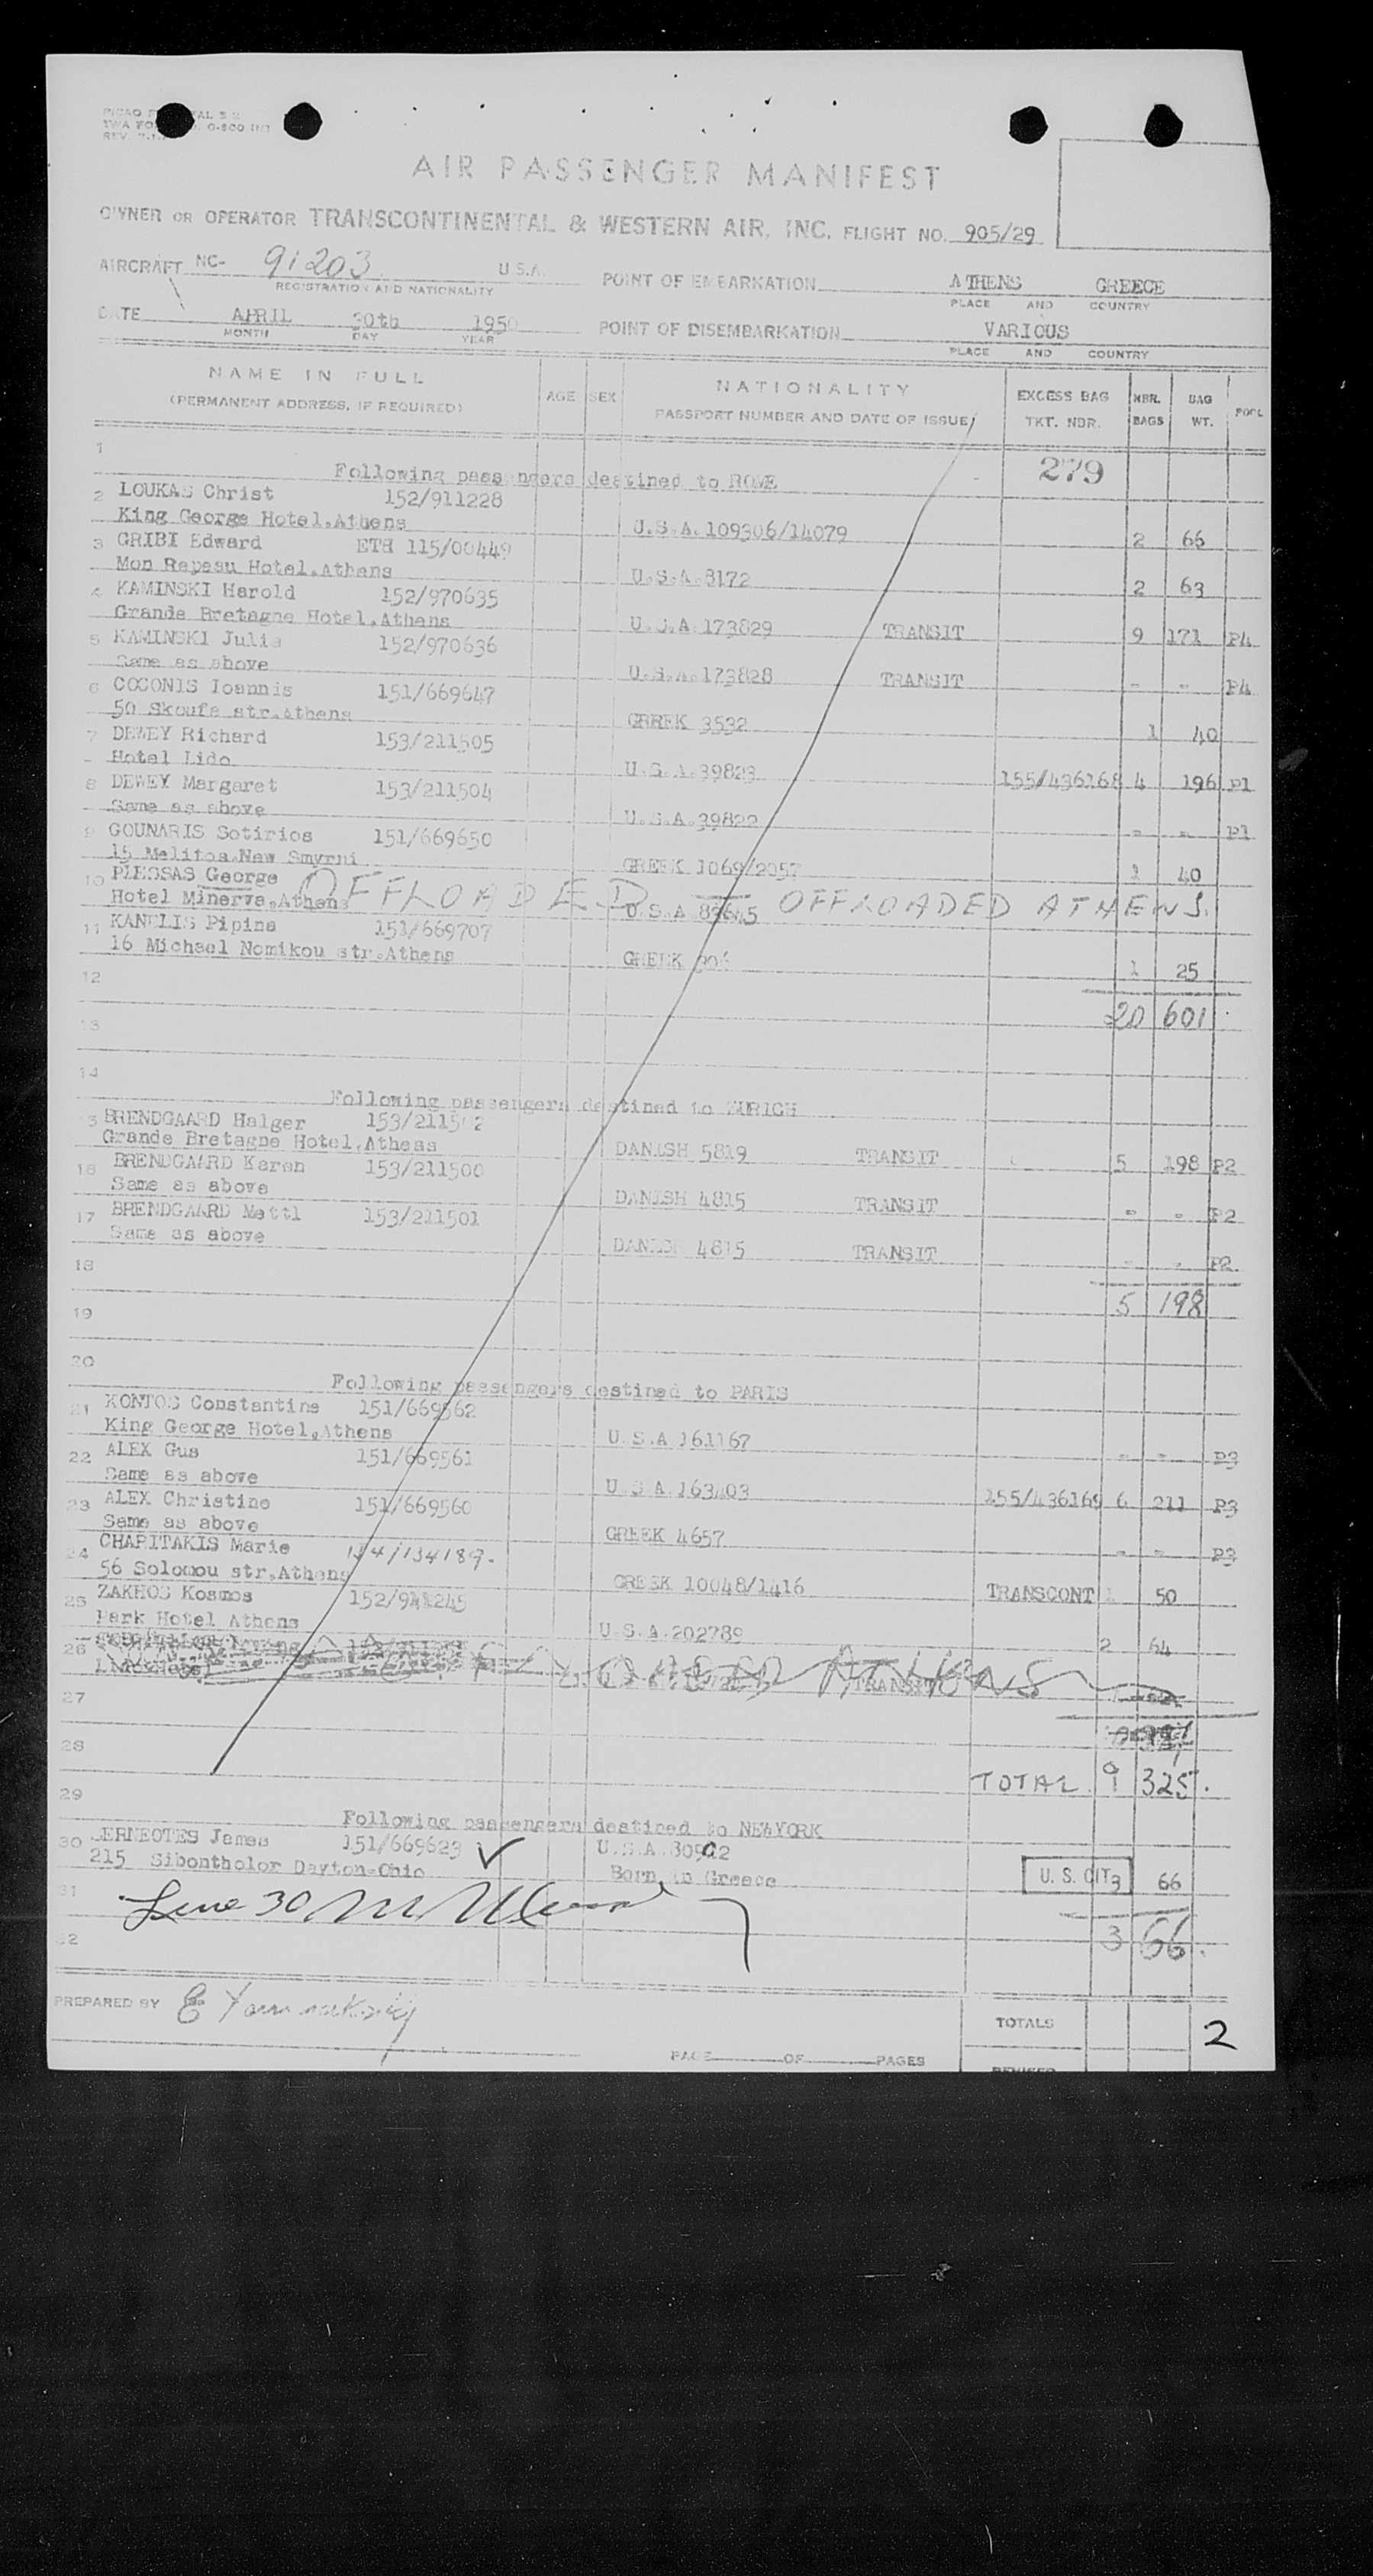 AIR PASSENGER MANIFEST
OWNER OR OPERATOR TRANSCONTINENTAL & WESTERN AIR, INC. FLIGHT NO. 905/29
AIRCRAFT NC- 91203 U.S.A. POINT OF EMBARKATION ATHENS GREECE
REGISTRATION AND NATIONALITY PLACE AND COUNTRY
DATE APRIL 30th 1950 POINT OF DISEMBARKATION VARIOUS
MONTH DAY YEAR PLACE AND COUNTRY
NAME IN FULL AGE SEX NATIONALITY EXCESS BAG NBR. BAG POOL
(PERMANENT ADDRESS, IF REQUIRED) PASSPORT NUMBER AND DATE OF ISSUE TKT. NBR. BAGS WT.
1 Following passengers destined to ROME 279
2 LOUKAS Christ 152/911228
King George Hotel,Athens U.S.A.109306/14079 2 66
3 GRIBI Edward ETH 115/00449
Mon Repesu Hotel,Athens U.S.A.8172 2 63
4 KAMINSKI Harold 152/970635
Grande Bretagne Hotel,Athens U.S.A.173829 TRANSIT 9 171 P4
5 KAMINSKI Julia 152/970636
Same as above U.S.A.173828 TRANSIT - - P4
6 COCONIS Ioannis 151/669647
50 Skoufa str.Athens GREEK 3532 1 40
7 DEWEY Richard 153/211505
Hotel Lido U.S.A.39823 155/436168 4 196 P1
8 DEWEY Margaret 153/211504
Same as above U.S.A.39822 - - P1
9 GOUNARIS Sotirios 151/669650
15 Melitos,New Smyrni GREEK 1069/2057 1 40
10 PLESSAS George OFFLOADED OFFLOADED ATHENS.
Hotel Minerva,Athens U.S.A
11 KANELIS Pipina 151/669707
16 Michael Nomikou str.Athens GREEK 1 25
12 20 601
13
14 Following passengers destined to ZURICH
BRENDGAARD Halger
Grande Bretagne Hotel,Athens DANISH 5819 TRANSIT 5 198 P2
16 BRENDGAARD Karen 153/211500
Same as above DANISH 4815 TRANSIT - - P2
17 BRENDGAARD Mettl 153/211501
Same as above DANISH 4815 TRANSIT - - P2
18 5 198
19
20 Following passengers destined to PARIS
21 KONTOS Constantine 151/669562
King George Hotel,Athens U.S.A 161167 - - P3
22 ALEX Gus 151/669561
Same as above U.S.A.163403 155/436169 6 211 P3
23 ALEX Christine 151/669560
Same as above GREEK 4657 - - P3
24 CHARITAKIS Marie 154/134189.
56 Solomou str,Athens GREEK 10048/1416 TRANSCONT 1 50
25 ZAKHOS Kosmos 152/911245
Park Hotel Athens U.S.A.202789 2 64
26 OFFLOADED ATHENS
TRANSIT
27
28 TOTAL 9 325.
29 Following passengers destined to NEWYORK
30 James 151/669623 U.S.A.
215 Sibontholor Dayton-Ohio Born in Greece U.S. CIT 3 66
31 Line 30
32 3 66.
PREPARED BY
TOTALS 2
PAGE OF PAGES